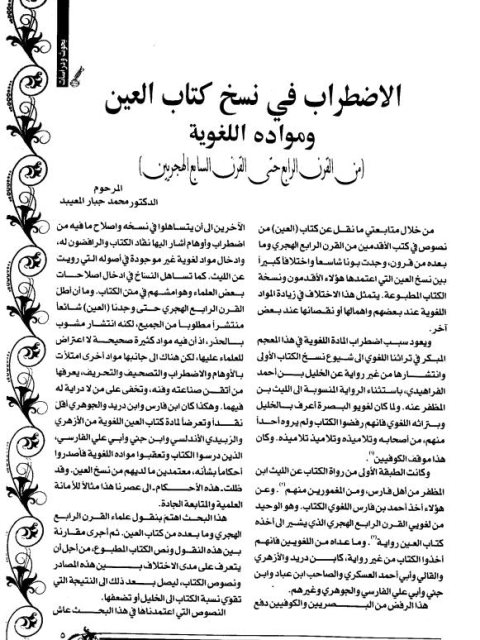 بحوث ودراسات
الاضطراب في نسخ كتاب العين
ومواده اللغوية
(من القرن الرابع حتى القرن السابع الهجريين)
المرحوم
الدكتور محمد جبار المعيبد
من خلال متابعتي ما نقل عن كتاب (العين) من
نصوص في كتب الأقدمين من القرن الرابع الهجري وما
بعده من قرون، وجدت بونا شاسعا واختلافا كبيراً
بين نسخ العين التي اعتمدها هؤلاء الأقدمون ونسخة
الكتاب المطبوعة. يتمثل هذا الاختلاف في زيادة المواد
اللغوية عند بعضهم واهمالها أو نقصانها عند بعض
آخر.
ويعود سبب اضطراب المادة اللغوية في هذا المعجم
المبكر في تراثنا اللغوي الى شيوع نسخ الكتاب الأولى
وانتشارها من غير رواية عن الخليل بن أحمد
الفراهيدي، باستثناء الرواية المنسوبة الى الليث بن
المظفر عنه. ولما كان لغويو البصرة أعرف بالخليل
وبتراثه اللغوي فانهم رفضوا الكتاب ولم يروه أحداً
منهم، من أصحابه وتلاميذه وتلاميذ تلاميذه. وكان
هذا موقف الكوفيين
وكانت الطبقة الأولى من رواة الكتاب عن الليث ابن
المظفر من أهل فارس، ومن المغمورين منهم. وعن
هؤلاء أخذ أحمد بن فارس اللغوي الكتاب. وهو الوحيد
من لغويي القرن الرابع الهجري الذي يشير الى أخذه
كتاب العين رواية. وما عداه من اللغويين فانهم
أخذوا الكتاب من غير رواية، كابن دريد والأزهري
والقالي وأبي أحمد العسكري والصاحب ابن عباد وابن
جني وأبي علي الفارسي والجوهري وغيرهم.
هذا الرفض من البصريين والكوفيين دفع
الآخرين الى أن يتساهلوا في نسخه واصلاح ما فيه من
اضطراب وأوهام أشار اليها نقاد الكتاب والرافضون له،
وادخال مواد لغوية غير موجودة في أصوله التي رويت
عن الليث. كما تساهل النساخ في ادخال اصلاحات
بعض العلماء وهوامشهم في متن الكتاب. وما أن أطل
القرن الرابع الهجري حتى وجدنا (العين) شائعاً
منتشراً مطلوبا من الجميع، لكنه انتشار مشوب
بالحذر، اذ أن فيه مواد كثيرة صحيحة لا اعتراض
للعلماء عليها، لكن هناك الى جانبها مواد أخرى امتلأت
بالأوهام والاضطراب والتصحيف والتحريف، يعرفها
من أتقن صناعته وفنه، وتخفى على من لا دراية له
فيهما. وهكذا كان ابن فارس وابن دريد والجوهري أقل
نقداً وتعرضاً لمادة كتاب العين اللغوية من الأزهري
والزبيدي الأندلسي وابن جني وأبي علي الفارسي،
الذين درسوا الكتاب وتعقبوا مواده اللغوية فأصدروا
أحكاما بشأنه، معتمدين ما لديهم من نسخ العين. وقد
ظلت.. هذه الأحكام.. الى عصرنا هذا مثالا للأمانة
العلمية والمتابعة الجادة.
هذا البحث اهتم بنقول علماء القرن الرابع
الهجري وما بعده من كتاب العين. ثم أجرى مقارنة
بين هذه النقول ونص الكتاب المطبوع، من أجل أن
يتعرف على مدى الاختلاف بين هذه المصادر
ونصوص الكتاب، ليصل بعد ذلك الى النتيجة التي
تقوي نسبة الكتاب الى الخليل أو تضعفها.
النصوص التي اعتمدناها في هذا البحث عاش
٥